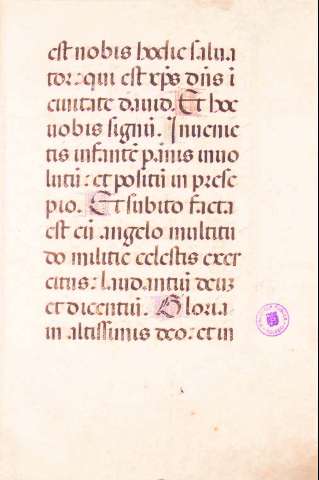 est nobis hodie salua
tor: qui est xp̄s dn̄s ī
ciuitate dauid. Et hoc
uobis signū. Inuenie
tis infantē pānis inuo
lutū: et positū in prese
pio. Et subito facta
est cū angelo multitu
do militie celestis exer
citus: laudantiū deuz
et dicentiū. Gloria
in altissimis deo. et in